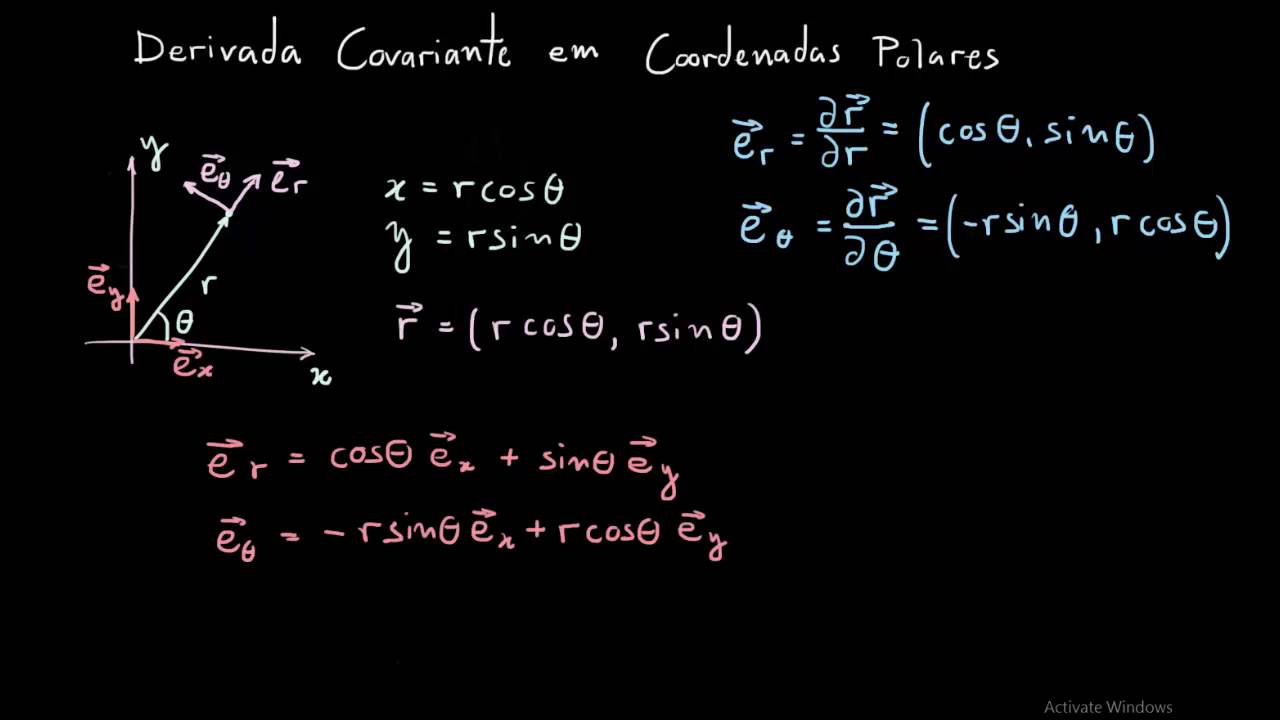 Derivada Covariante em Coordenadas Polares
y
e⃗θ
e⃗r
e⃗y
r
θ
e⃗x
x
x = r cosθ
y = r sinθ
r⃗ = (r cosθ, r sinθ)
e⃗r = ∂r⃗/∂r = (cosθ, sinθ)
e⃗θ = ∂r⃗/∂θ = (-r sinθ, r cosθ)
e⃗r = cosθ e⃗x + sinθ e⃗y
e⃗θ = - r sinθ e⃗x + r cosθ e⃗y
Activate Windows